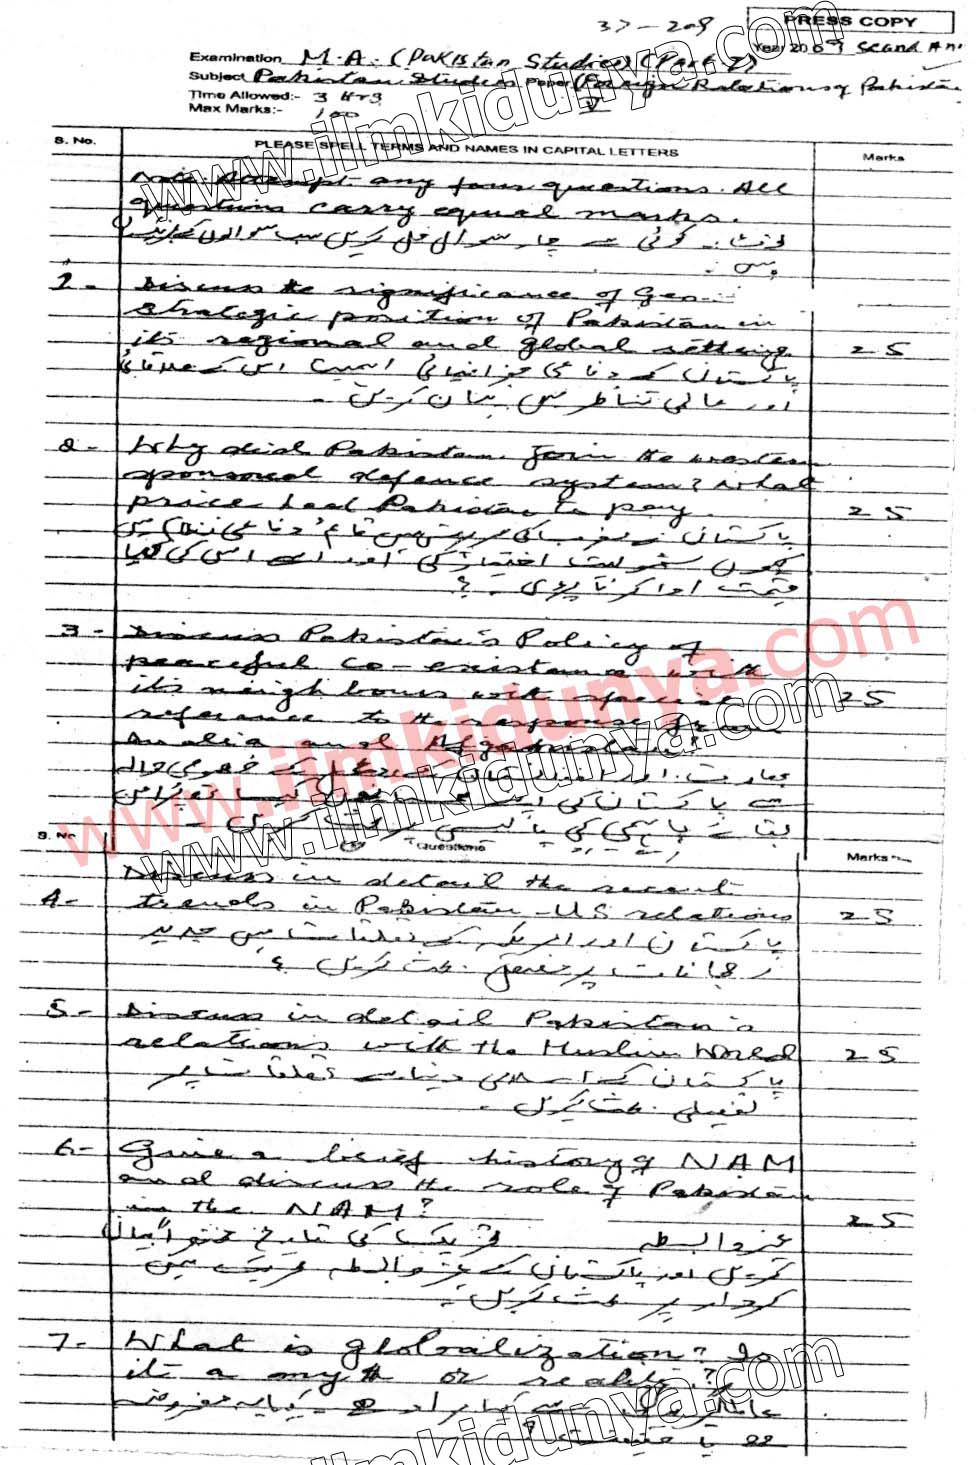 37-209
PRESS COPY
Year 2009 Second An
Examination M.A. (Pakistan Studies) (Part I)
Subject Pakistan Studies Paper (Foreign Relations of Pakistan
Time Allowed:- 3 Hrs
V
Max Marks:- 100
S. No. PLEASE SPELL TERMS AND NAMES IN CAPITAL LETTERS Marks
Note Attempt any four questions. All
questions carry equal marks.
نوٹ :۔ کوئی سے چار سوال حل کریں سب سوالوں کے
ہیں :
1- Discuss the significance of Geo-
Strategic position of Pakistan in
its regional and global setting. 25
پاکستان کے دفاعی جغرافیائی اہمیت اس کے علاقائی
اور عالمی تناظر میں بیان کریں ۔
2- Why did Pakistan Join the western
sponsored defence system? What
price had Pakistan to pay. 25
پاکستان نے مغرب کی سرپرستی میں قائم دفاعی نظام میں
کیوں شمولیت اختیار کی اور اسے اس کی کیا
قیمت ادا کرنا پڑی ۔ ؟
3- Discuss Pakistan's Policy of
peaceful co-existance with
its neighbours with special 25
reference to the response from
India and Afganistan?
بھارت اور افغانستان کے خصوصی حوالے
سے پاکستان کی اپنے کے ساتھ پرامن
بقائے باہمی کی پالیسی پر بحث کریں ۔
S. No Questions Marks
Discuss in detail the recent
4- trends in Pakistan-US relations 25
پاکستان اور امریکہ کے تعلقات میں جدید
رجحانات پر بحث کریں ؟
5- Discuss in detail Pakistan's
relations with the Muslim World 25
پاکستان کے اسلامی دنیا سے تعلقات پر
تفصیلی بحث کریں ۔
6- Give a brief history of NAM
and discuss the role of Pakistan
in the NAM? 25
غیر وابستہ تحریک کی تاریخ مختصراً بیان
کریں اور پاکستان کے غیر وابستہ تحریک میں
کردار پر بحث کریں ۔
7- What is globalization? Is
it a myth or reality?
عالمگیریت سے کیا مراد ہے ۔ کیا یہ مفروضہ
ہے یا حقیقت ؟
www.ilmkidunya.com
www.ilmkidunya.com
www.ilmkidunya.com
www.ilmkidunya.com